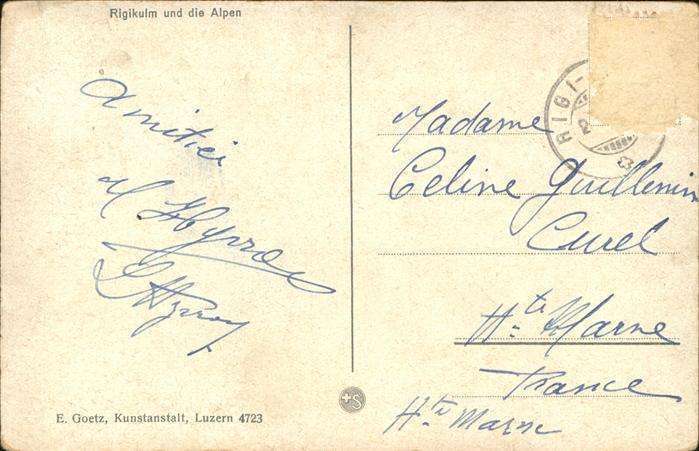 Rigikulm und die Alpen
Amitiés
Madame
Celine Guillemin
Curel
Hte Marne
France
Hte Marne
RIGI-
E. Goetz, Kunstanstalt, Luzern 4723